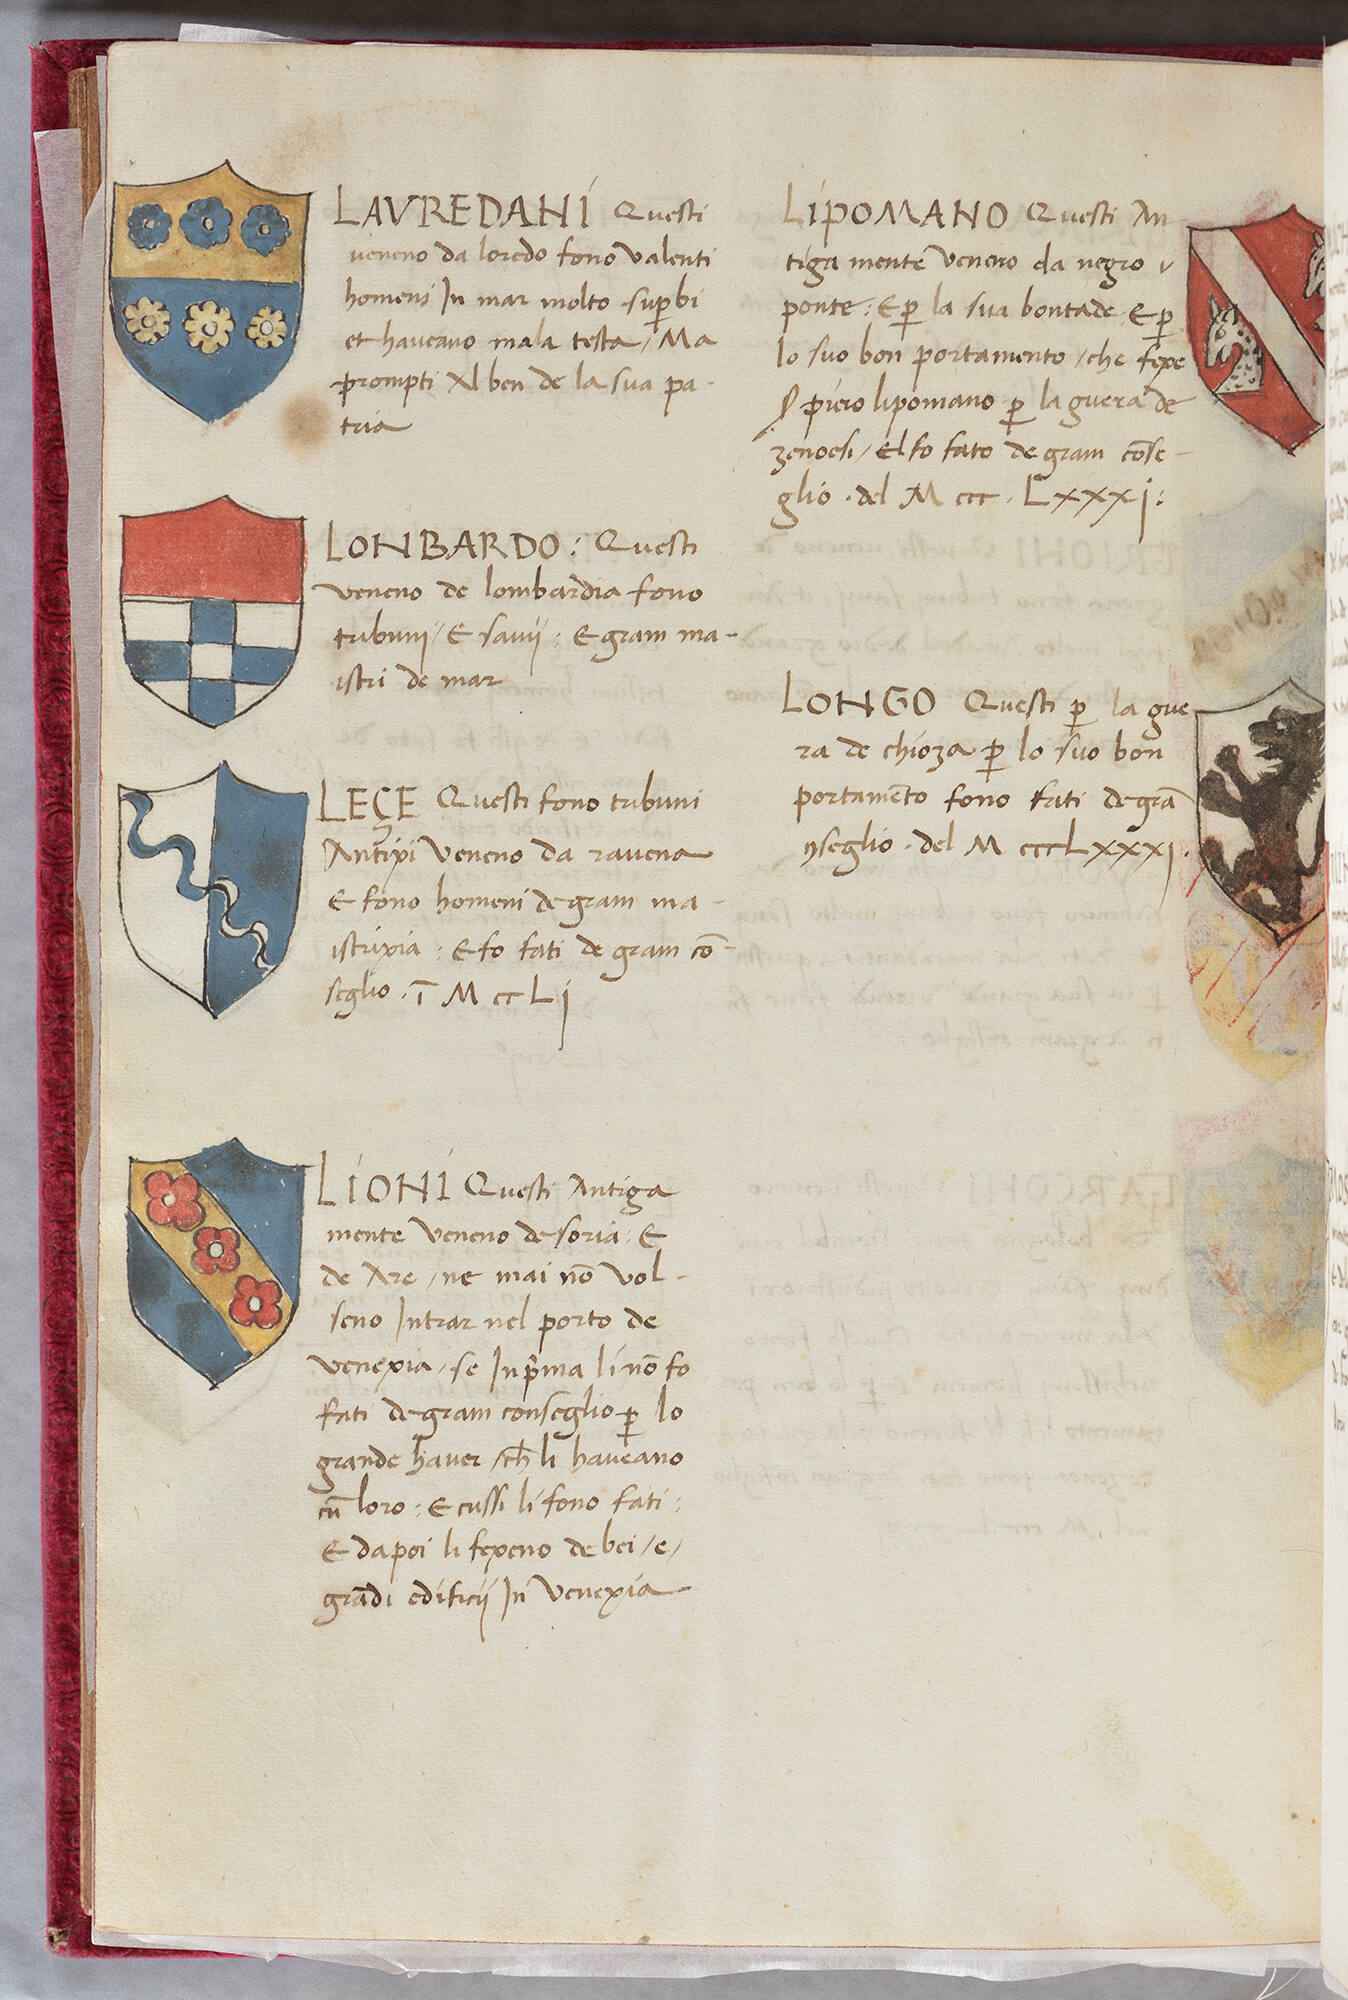 LAVREDANI Questi
veneno da loredo fono valenti
homeni In mar molto superbi
et haveano mala testa / Ma
prompti Al ben de la sua pa-
tria
LONBARDO: Questi
veneno de lombardia fono
tribunj / E savij : E gram ma-
istri de mar
LEÇE Questi fono tribuni
Antixi Veneno da ravena
E fono homeni de gram ma-
istrixia : E fo fati de gram cõ-
seglio . ĩ M cc L j
LIONI Questi Antiga
mente Veneno de soria : E
de Are / ne mai nõ vol-
seno Intrar nel porto de
venexia / se In p̃ma li nõ fo
fati de gram conseglio p̱ lo
grande haver / ch̃ li haveano
cũ loro : E cussi li fono fati :
E da poi li fexeno de bei / e /
grãdi edificij In Venexia
LIPOMANO Questi An
tiga mente Veneno da negro
ponte : E p̱ la sua bontade E p̱
lo suo bon portamento / che fexe
piero lipomano p̱ la guera de
zenoesi / El fo fato de gram cõse-
glio . del M ccc . Lxxxj :
LONGO Questi p̱ la gue
ra de chioza p̱ lo suo bon
portamẽto fono fati de grã
ɔseglio . del M cccLxxxj .